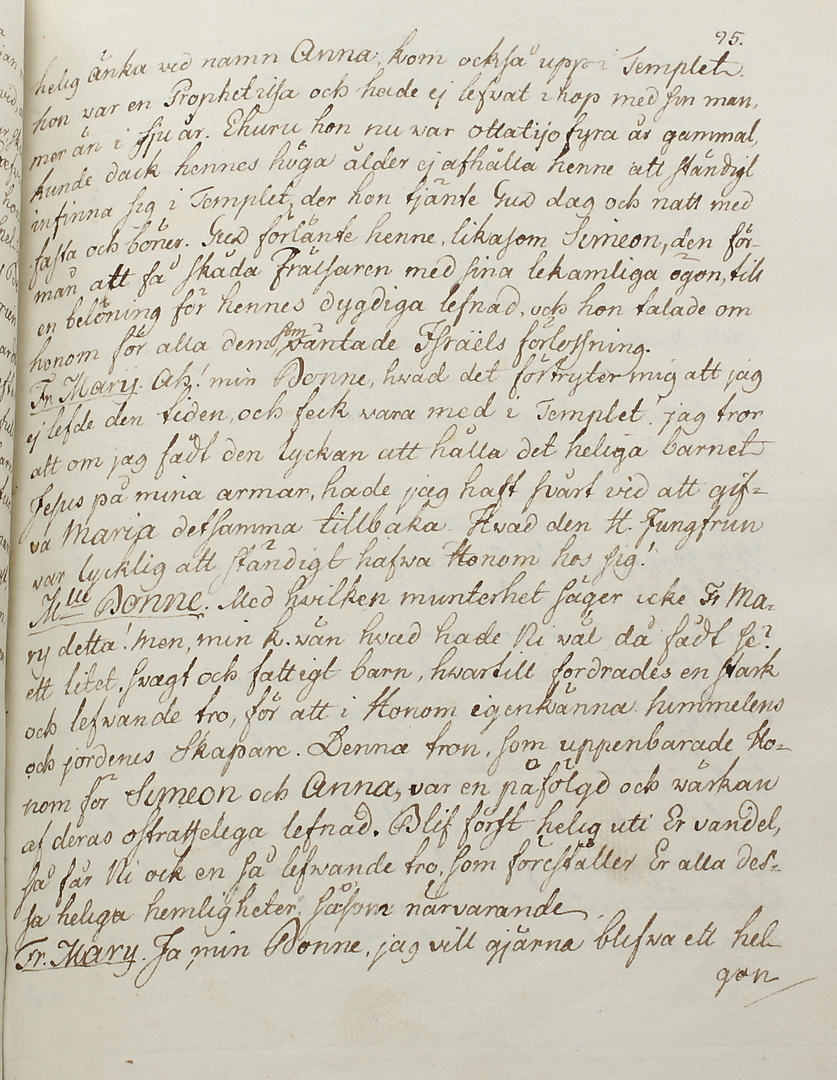 95.
helig änka vid namn Anna, kom också upp i Templet.
hon var en Prophetissa och hade ej lefvat ihop med sin man,
mer än i sju år. Ehuru hon nu var ottatijo fyra år gammal,
kunde dack hennes höga ålder ej afhålla henne att ständigt
infinna sig i Templet, der hon tjänte Gud dag och natt med
fasta och böner. Gud förlänte henne, likasom Simeon, den för-
mån att få skåda Frälsaren med sina lekamliga ögon, till
en belöning för hennes dygdiga lefnad, och hon talade om
honom för alla dem som väntade Israëls förlossning.
Fr. Mary. Ah! min Bonne, hvad det förtryter mig att jag
ej lefde den tiden, och feck vara med i Templet! jag tror
att om jag fådt den lyckan att hålla det heliga barnet
Jesus på mina armar, hade jag haft svårt vid att gif-
va Maria detsamma tillbaka. Hvad den H. Jungfrun
var lycklig att ständigt hafva Honom hos sig!
Mlle Bonne. Med hvilken munterhet säger icke Fr Ma-
ry detta! men, min k. vän hvad hade Ni väl då fådt se?
ett litet, svagt och fattigt barn, hwartill fordrades en stark
och lefwande tro, för att i Honom igenkänna himmelens
och jordenes Skapare. Denna tron, som uppenbarade Ho-
nom för Simeon och Anna, var en påföljd och wärkan
af deras ostraffeliga lefnad. Blif först helig uti Er vandel,
så får Ni ock en så lefwande tro, som föreställer Er alla des-
sa heliga hemligheter, såsom närvarande.
Fr. Mary. Ja, min Bonne, jag vill gjärna blifwa ett hel-
gon